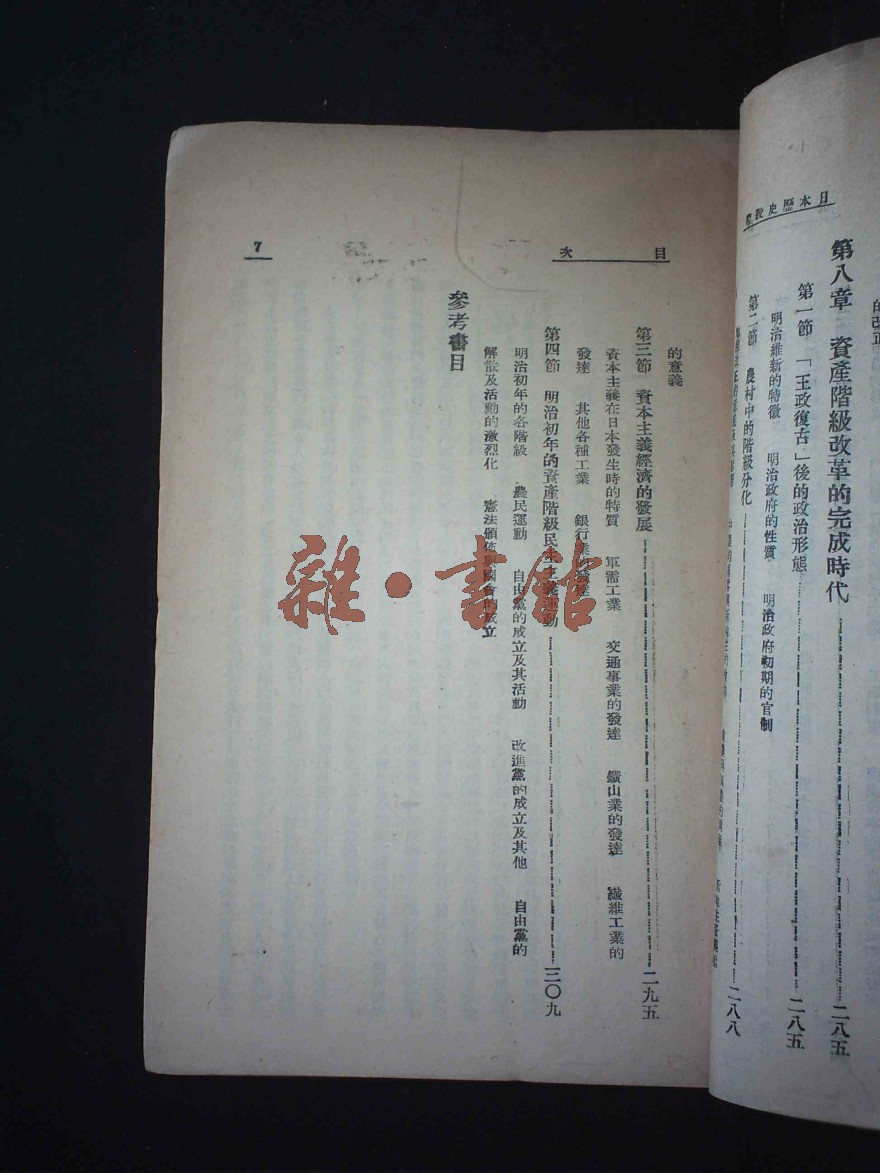 日本歷史
的改正
第八章　資產階級改革的完成時代……二八五
第一節　「王政復古」後的政治形態……二八五
明治維新的特徵　明治政府的性質　明治政府初期的官制
第二節　農村中的階級分化……二八八
目次
7
的意義
第三節　資本主義經濟的發展……二九五
資本主義在日本發生時的特質　軍需工業　交通事業的發達　鑛山業的發達　纖維工業的
發達　其他各種工業　銀行業的發達
第四節　明治初年的資產階級民主主義運動……三〇九
明治初年的各階級　農民運動　自由黨的成立及其活動　改進黨的成立及其他　自由黨的
解散及活動的激烈化　憲法頒佈與國會的成立
參考書目
雜·書館